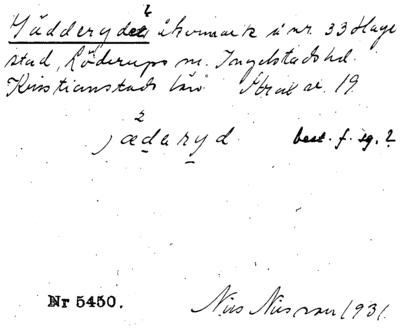 Gädderydet åkermark å nr. 33 Hage
stad, Löderups sn. Ingelstads hd.
Kristianstads län
jädaryd best. f. sg.?
Nr 5450. Nils Nilsson 1931